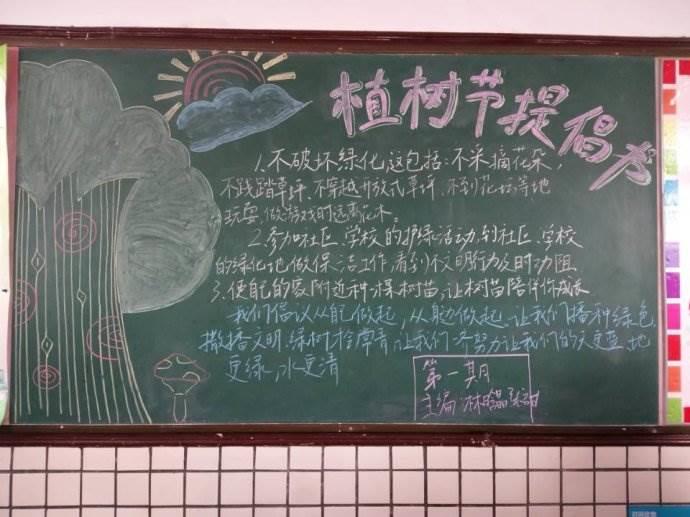 植树节提倡书
1.不破坏绿化,这包括:不采摘花朵,
不践踏草坪、不穿越开放式草坪、不到花坛等地
玩耍,做游戏时远离花木。
2.参加社区、学校的护绿活动,到社区、学校
的绿化地做保洁工作,看到不文明行为及时劝阻
3.便自己的家附近种一棵树苗,让树苗陪伴你成长
我们倡议从自己做起,从身边做起,让我们播种绿色,
撒播文明,绿树格常青,让我们一齐努力让我们的天更蓝,地
更绿,水更清
第一期
主编:林